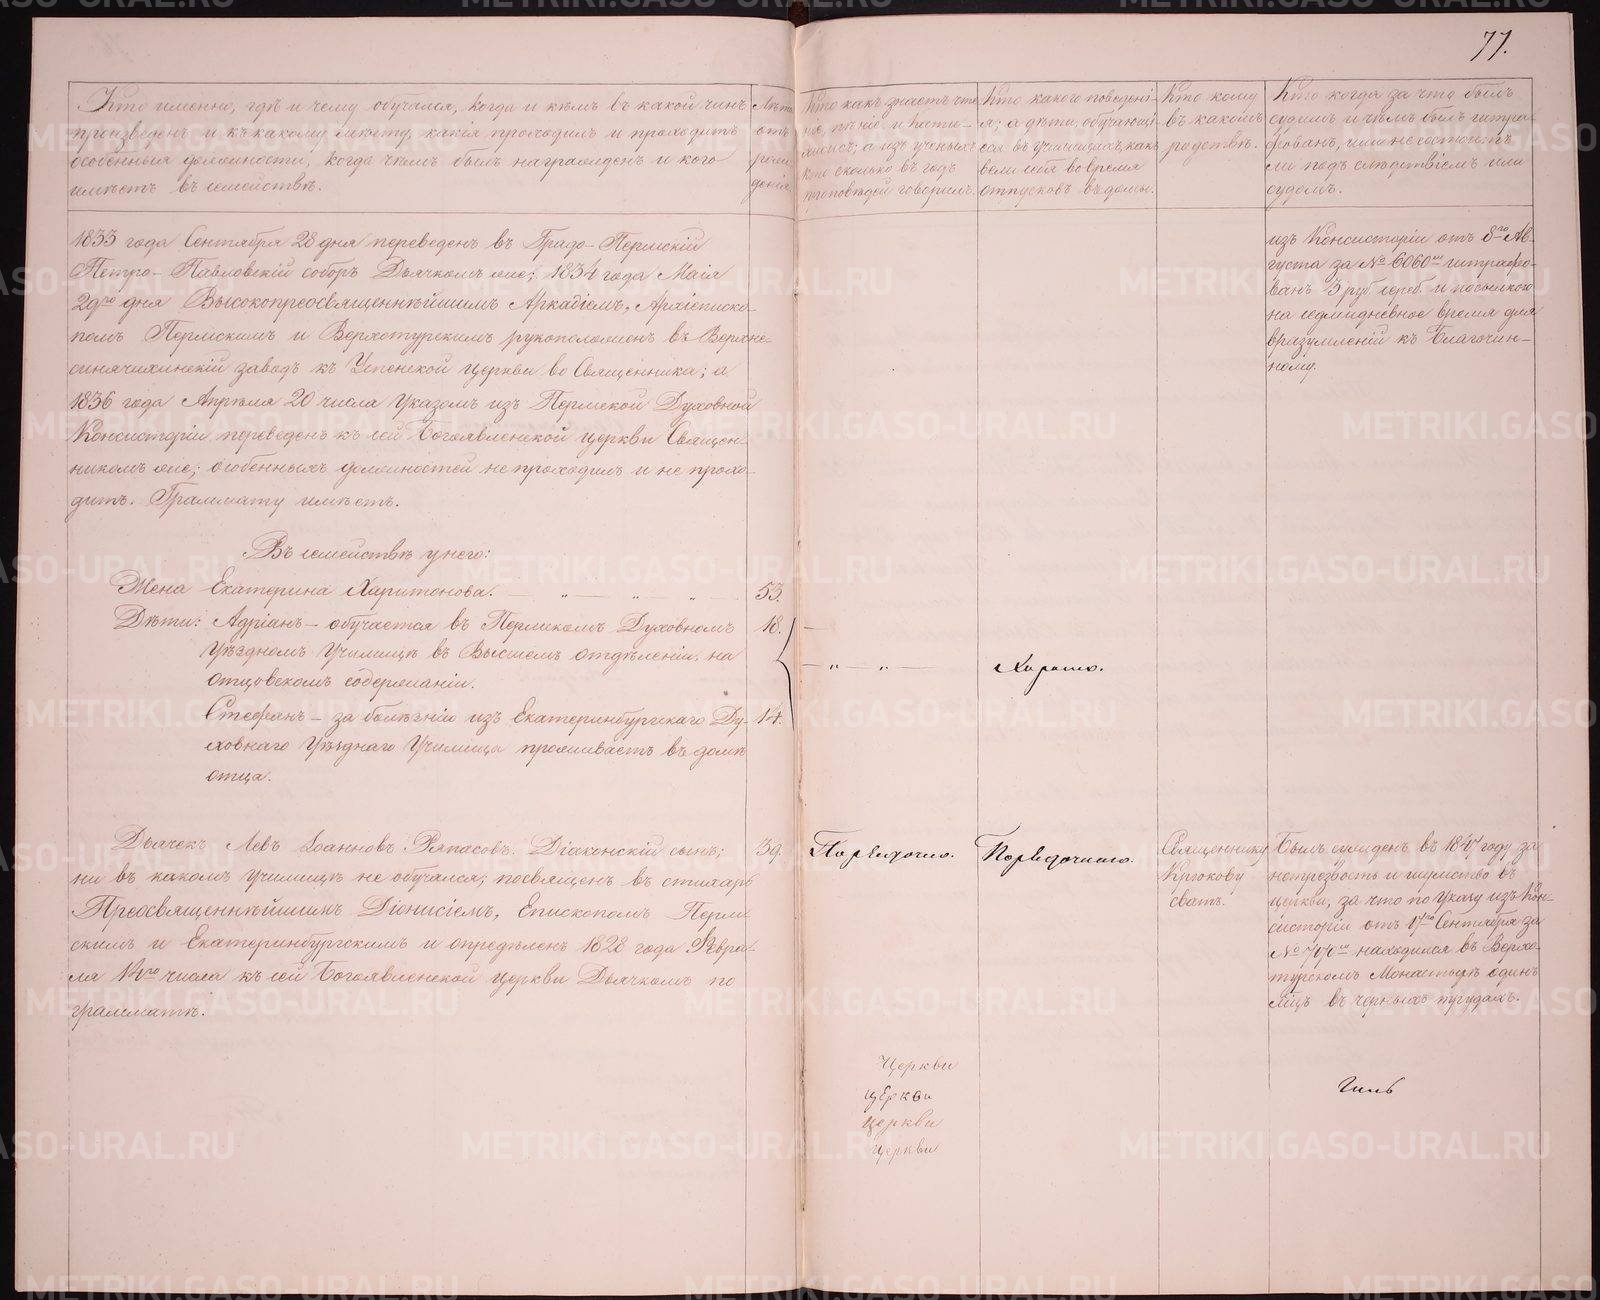 77.
Кто именно, гдѣ и чему обучался, когда и кѣмъ въ какой чинъ
произведенъ и къ какому мѣсту, какія проходилъ и проходитъ
особенныя должности, когда чѣмъ былъ награжденъ и кого
имѣетъ въ семействѣ.
Лѣта
отъ
рож
денія
Кто какъ знаетъ чте
ніе, пѣніе и Кати-
хизисъ; а изъ ученыхъ
кто сколько въ годъ
проповѣдей говорилъ.
Кто какого поведені-
я; а дѣти, обучающі-
еся въ училищахъ, какъ
вели себя во время
отпусковъ въ домы.
Кто кому
въ какомъ
родствѣ.
Кто когда за что былъ
судимъ и чѣмъ былъ штра-
фованъ, или не состоитъ
ли подъ слѣдствіемъ или
судомъ.
1833 года Сентября 28 дня переведенъ въ Градо-Пермскій
Петро-Павловскій соборъ Дьячкомъ же; 1834 года Маія
29го дня Высокопреосвященнѣйшимъ Аркадіемъ, Архіеписко-
помъ Пермскимъ и Верхотурскимъ рукоположенъ въ Верхне-
синячихинскій заводъ къ Успенской церкви во Священника; а
1836 года Апрѣля 20 числа Указомъ изъ Пермской Духовной
Консисторіи переведенъ къ сей Богоявленской церкви Священ-
никомъ же; особенныхъ должностей не проходилъ и не прохо-
дитъ. Граммату имѣетъ.
изъ Консисторіи отъ 8го Ав-
густа за № 6060мъ штрафо-
ванъ 3 руб. сереб. и посылкою
на седмидневное время для
вразумленій къ Благочин-
ному.
Въ семействѣ у него:
Жена Екатерина Харитонова. — „ — „ — „ — 53.
Дѣти: Адріанъ — обучается въ Пермскомъ Духовномъ 18. —
Уѣздномъ Училищѣ въ Высшемъ отдѣленіи, на
— „ — „ — Хорошо.
отцовскомъ содержаніи.
Стефанъ — за болѣзнію изъ Екатеринбургскаго Ду- 14.
ховнаго Уѣзднаго Училища проживаетъ въ домѣ
отца.
Дьячекъ Левъ Іоанновъ Ряпасовъ. Діаконскій сынъ; 39.
ни въ какомъ училищѣ не обучался; посвященъ въ стихарь
Преосвященнѣйшимъ Діонисіемъ, Епископомъ Перм-
скимъ и Екатеринбургскимъ и опредѣленъ 1828 года Февра-
ля 14го числа къ сей Богоявленской церкви Дьячкомъ по
грамматѣ.
Порядочно.
Порядочнаго.
Священнику
Крюкову
сватъ.
Былъ сужденъ въ 1847 году за
нетрезвость и шумство въ
церкви, за что по Указу изъ Кон-
систоріи отъ 17го Сентября за
№ 7070мъ находился въ Верхо-
турскомъ Монастырѣ одинъ
мѣцъ въ черныхъ трудахъ.
Церкви
церкви
церкви
церкви